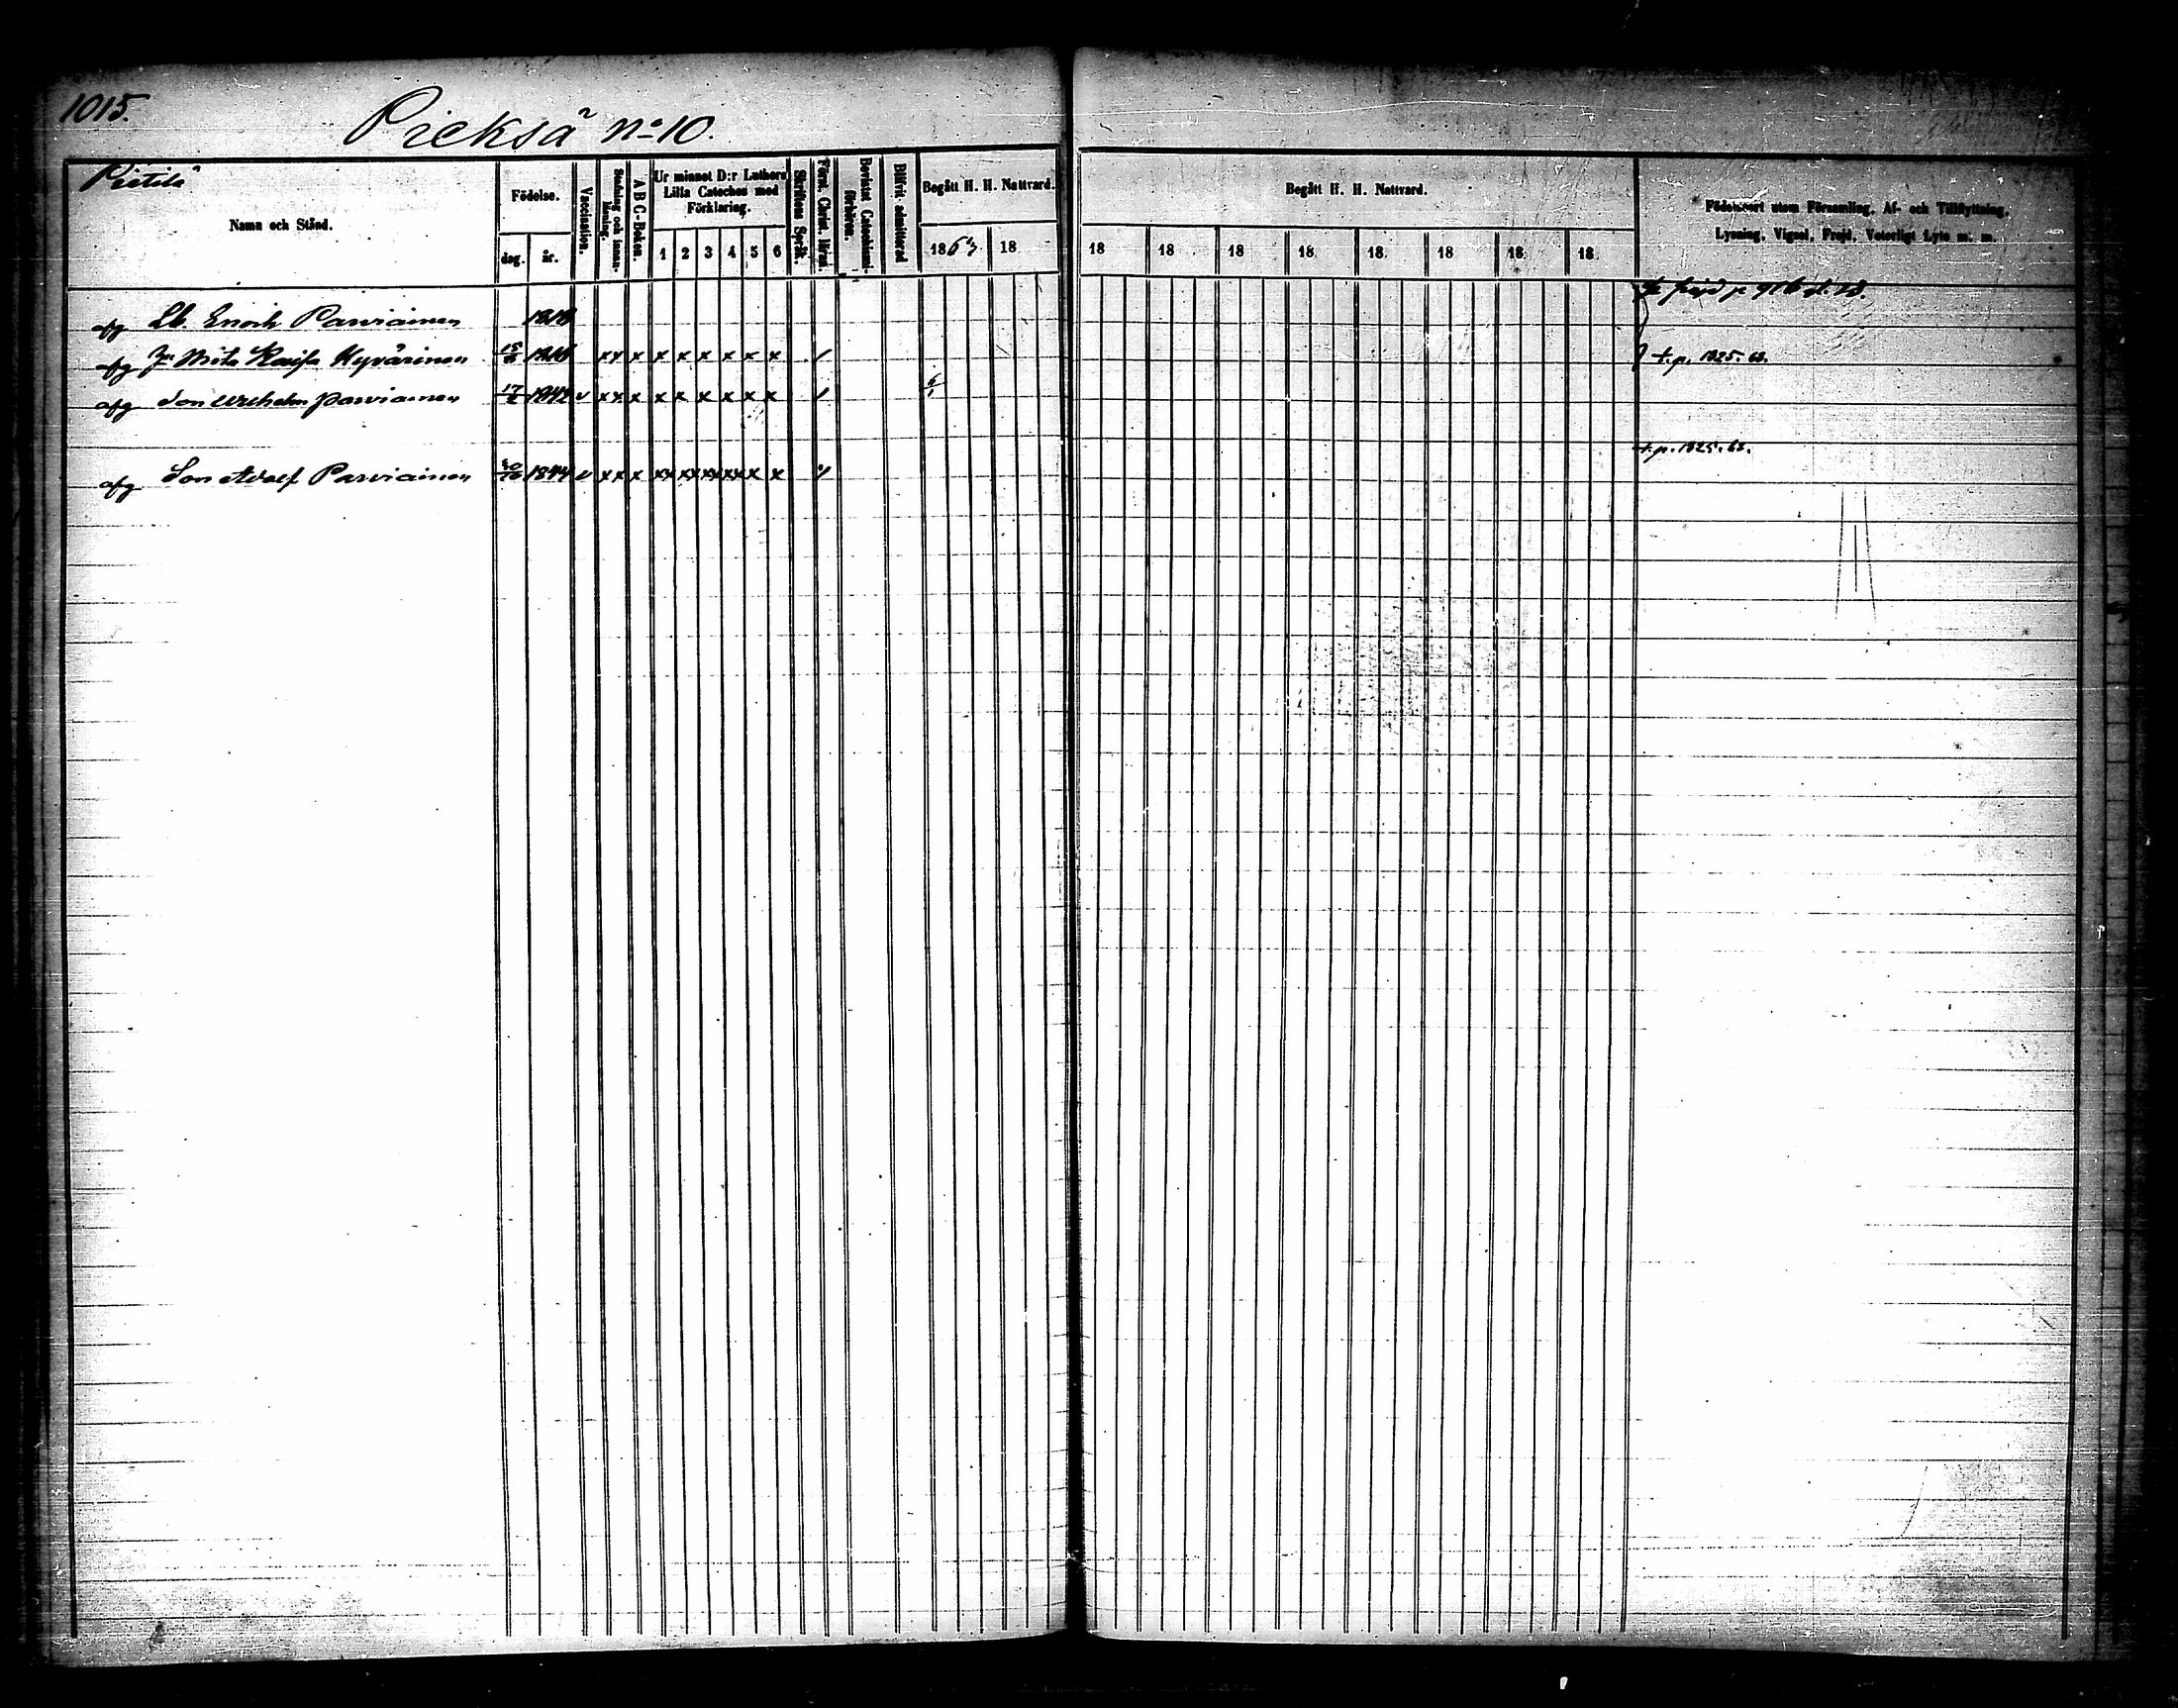 1015.
Pieksä No 10.
Pietilä
Namn och Stånd.
Födelse.
dag.
år.
Vaccination.
Stafning och innanläsning.
A B C-Boken.
Ur minnet D:r Luthers Lilla Cateches med Förklaring.
1 2 3 4 5 6
Skriftens Språk.
Först. Christ. lära.
Bevistat Catechismiförhören.
Blifvit admitterad
Begått H. H. Nattvard.
1863 18
Begått H. H. Nattvard.
18 18 18 18. 18. 18 18. 18.
Födelseort utom Församling, Af- och Tillflyttning,
Lysning, Vigsel, Frejd, Veterligt Lyte m. m.
afg Lb. Enoch Parviainen 1818
afg Kaisa Hyvärinen 1818 xx x x x x x x x /
t.p. 1025. 63.
afg Son Wilhelm Parviainen 17 1842 v xx x x x x x x x /
t.p. 1025. 63.
afg Son Adolf Parviainen 30/10 1844 v x x x xx xx xx xx x x